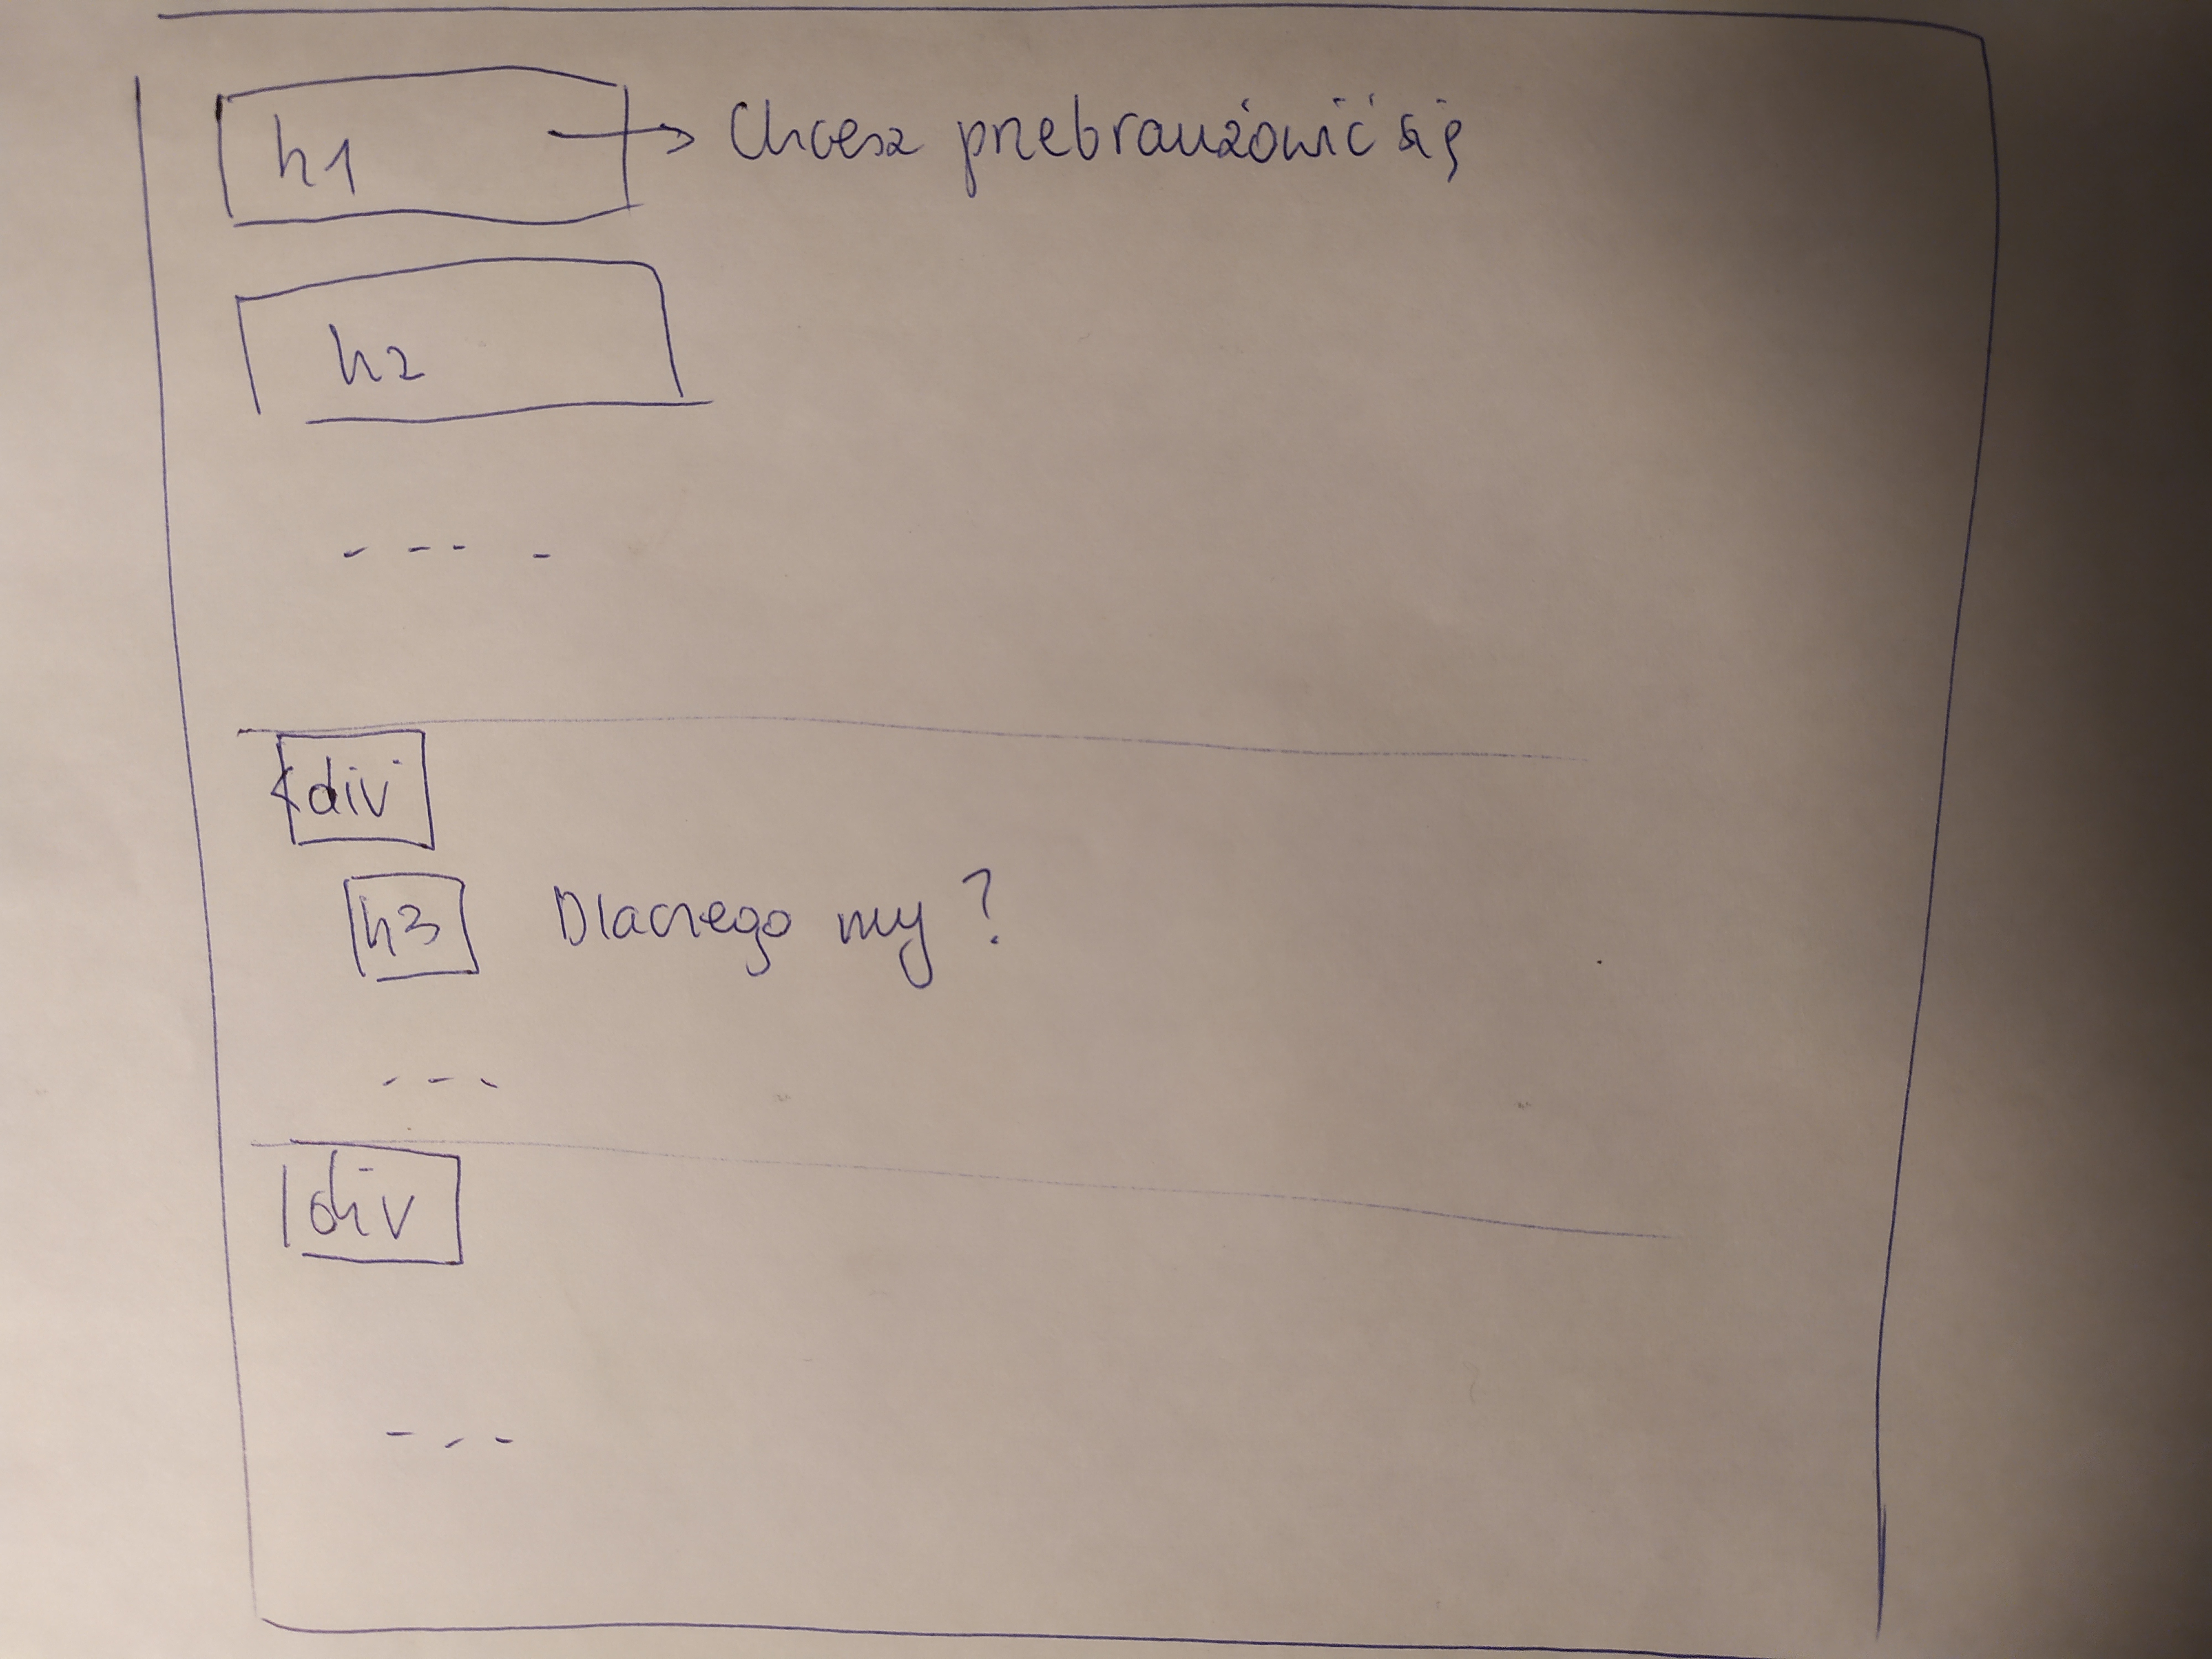 h1 → Chcesz przebranżowić się
h2
- - - -
<div
h3 Dlaczego my?
- - -
div
- - -